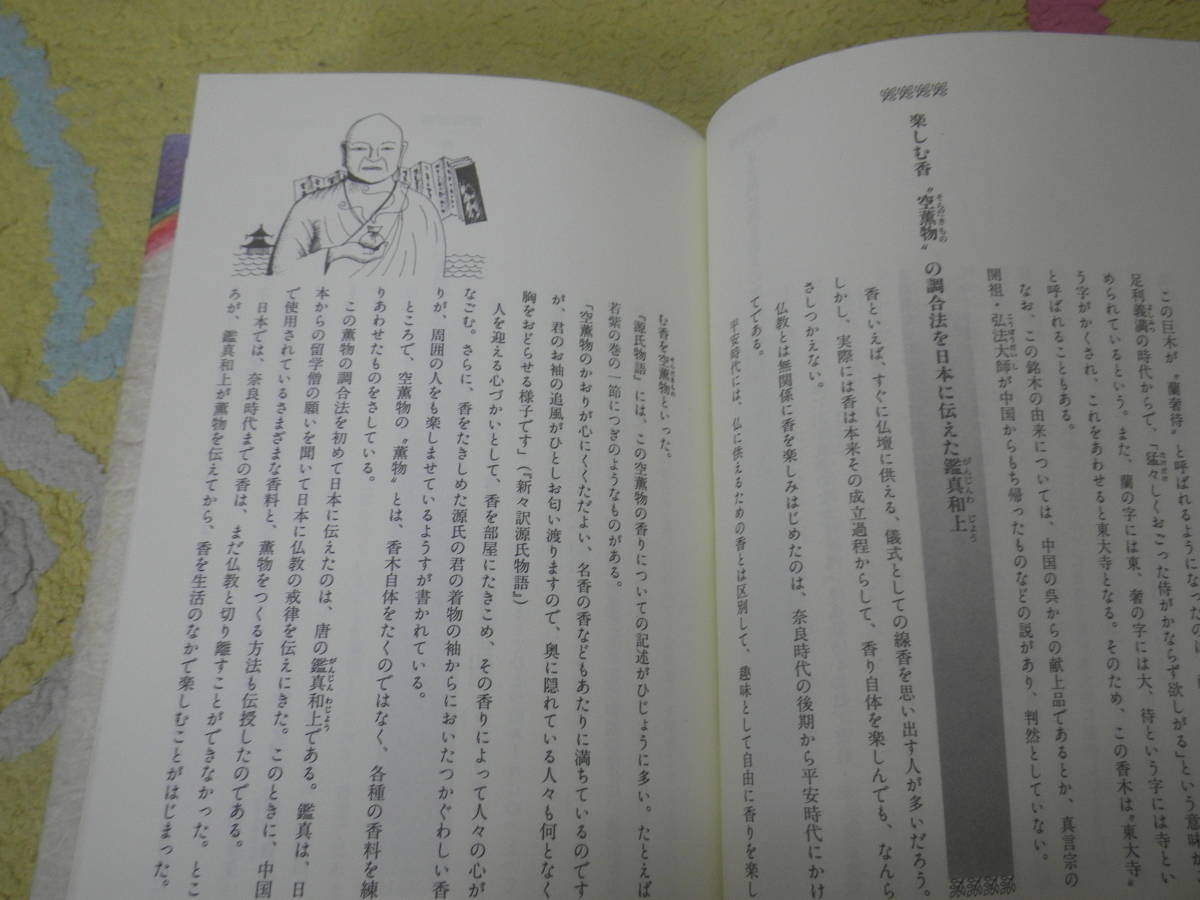 この巨木が〝蘭奢待〟と呼ばれるようになったのは、
足利義満の時代からで、「猛々しくおごった侍がかならず欲しがる」という意味が
められているという。また、蘭の字には東、奢の字には大、待という字には寺とい
う字がかくされ、これをあわせると東大寺となる。そのため、この香木は〝東大寺〟
と呼ばれることもある。
なお、この銘木の由来については、中国の呉からの献上品であるとか、真言宗の
開祖・弘法大師が中国からもち帰ったものなどの説があり、判然としていない。
楽しむ香〝空薫物〟の調合法を日本に伝えた鑑真和上
香といえば、すぐに仏壇に供える、儀式としての線香を思い出す人が多いだろう。
しかし、実際には香は本来その成立過程からして、香り自体を楽しんでも、なんら
さしつかえない。
仏教とは無関係に香を楽しみはじめたのは、奈良時代の後期から平安時代にかけ
てである。
平安時代には、仏に供えるための香とは区別して、趣味として自由に香りを楽し
む香を空薫物といった。
『源氏物語』には、この空薫物の香りについての記述がひじょうに多い。たとえば
若紫の巻の一節につぎのようなものがある。
「空薫物のかおりが心にくくただよい、名香の香などもあたりに満ちているのです
が、君のお袖の追風がひとしお匂い渡りますので、奥に隠れている人々も何となく
胸をおどらせる様子です」(『新々訳源氏物語』)
人を迎える心づかいとして、香を部屋にたきこめ、その香りによって人々の心が
なごむ。さらに、香をたきしめた源氏の君の着物の袖からにおいたつかぐわしい香
りが、周囲の人をも楽しませているようすが書かれている。
ところで、空薫物の〝薫物〟とは、香木自体をたくのではなく、各種の香料を練
りあわせたものをさしている。
この薫物の調合法を初めて日本に伝えたのは、唐の鑑真和上である。鑑真は、日
本からの留学僧の願いを聞いて日本に仏教の戒律を伝えにきた。このときに、中国
で使用されているさまざまな香料と、薫物をつくる方法も伝授したのである。
日本では、奈良時代までの香は、まだ仏教と切り離すことができなかった。とこ
ろが、鑑真和上が薫物を伝えてから、香を生活のなかで楽しむことがはじまった。